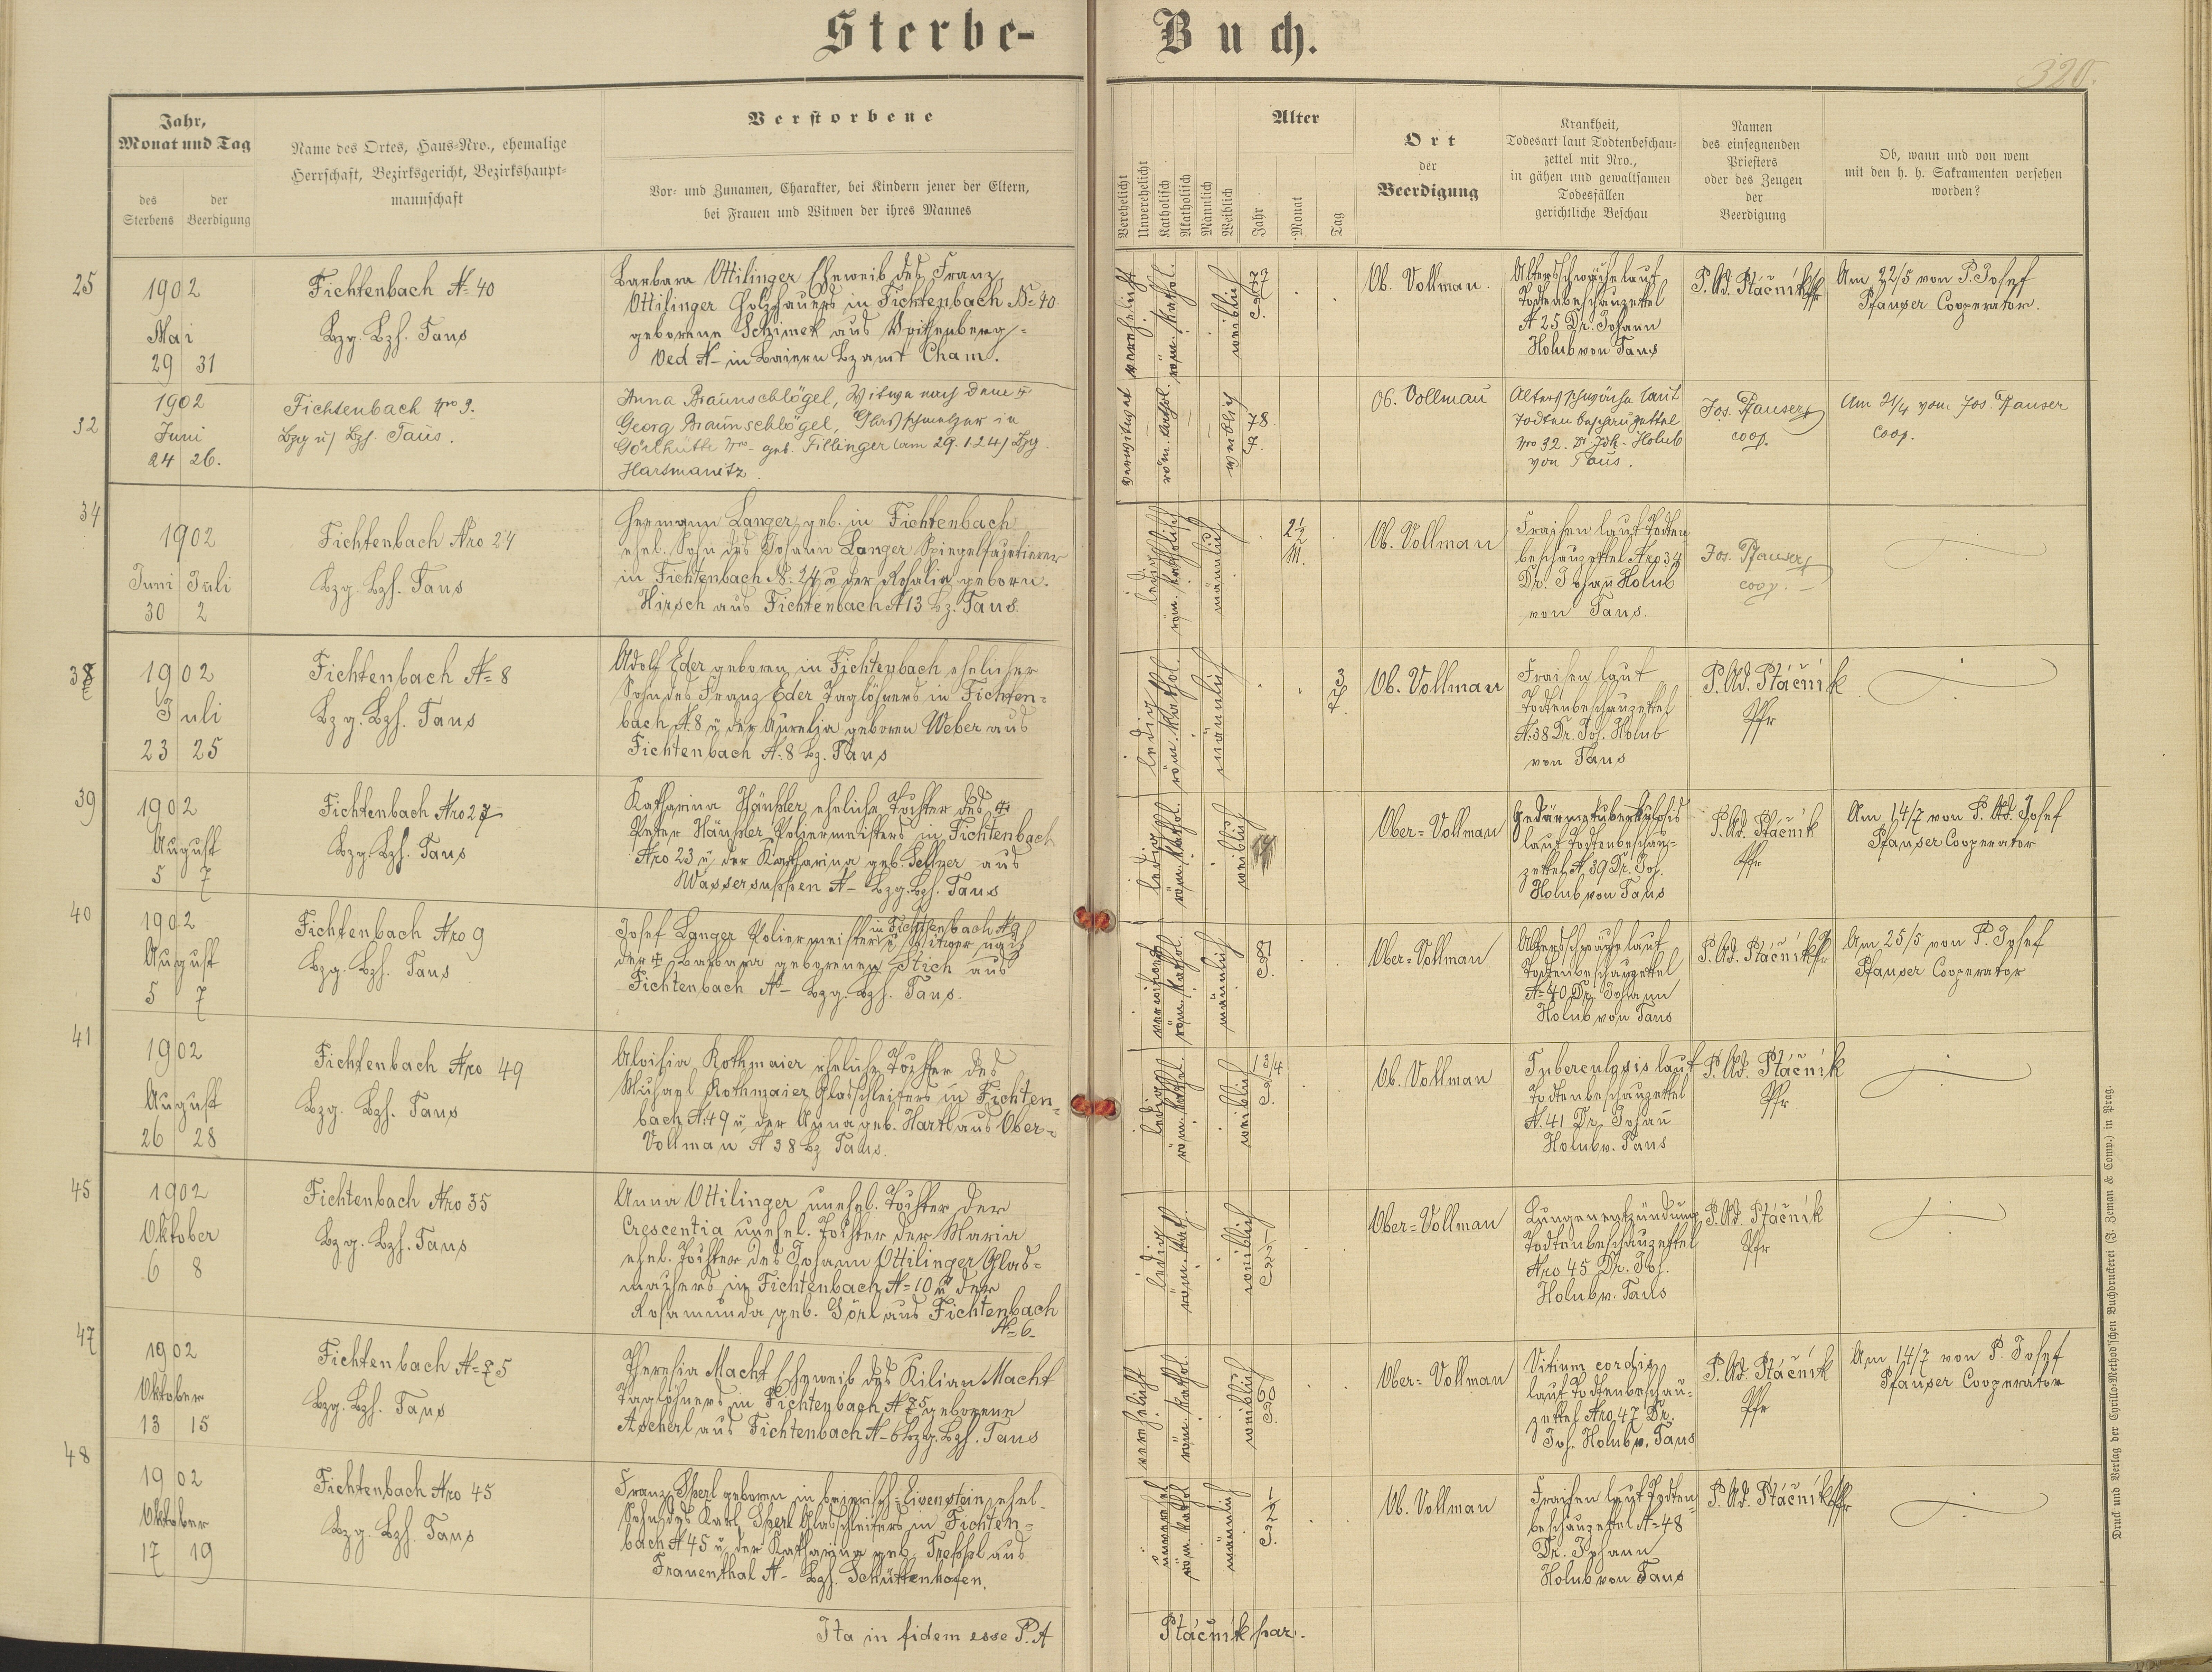 Sterbe-Buch.
320.
Jahr, Monat und Tag
des Sterbens
der Beerdigung
Name des Ortes, Haus-Nro., ehemalige
Herrschaft, Bezirksgericht, Bezirkshaupt-
mannschaft
Verstorbene
Vor- und Zunamen, Charakter, bei Kindern jener der Eltern,
bei Frauen und Witwen der ihres Mannes
Verehelicht
Unverehelicht
Katholisch
Akatholisch
Männlich
Weiblich
Alter
Jahr
Monat
Tag
Ort
der
Beerdigung
Krankheit,
Todesart laut Todtenbeschau-
zettel mit Nro.,
in gähen und gewaltsamen
Todesfällen
gerichtliche Beschau
Namen
des einsegnenden
Priesters
oder des Zeugen
der
Beerdigung
Ob, wann und von wem
mit den h. h. Sakramenten versehen
worden?
25
1902
Mai
29 31
Fichtenbach N= 40
Bzg. Bzh. Taus
Barbara Ottilinger Eheweib des Franz
Ottilinger Holzhauers in Fichtenbach N= 40
geborene Schimek aus
Oed N- in Baiern Bzamt Cham.
verehelicht
röm. kathol.
weiblich
77
Ob. Vollmau.
Altersschwäche laut
Todtenbeschauzettel
N 25 Dr. Johann
Holub von Taus
P. Ad. Ptáčník Pfr
Am 22/5 von P. Josef
Pfauser Cooperator.
32
1902
Juni
24 26.
Fichtenbach Nro 9.
Bzg u/ Bzh. Taus.
Anna Braunschlögel, Witwe nach dem †
Georg Braunschlögel, Glasschmelzer in
Görlhütte Nro - geb. Fillinger (am 29.1.24) Bzg.
Hartmanitz.
verwitwet
röm. kathol.
weiblich
78
J.
Ob. Vollmau
Altersschwäche laut
Todtenbeschauzettel
Nro 32. Dr Joh. Holub
von Taus.
Jos. Pfauser
coop.
Am 21/4 vom Jos. Pfauser
Coop.
34
1902
Juni Juli
30 2
Fichtenbach Nro 24
Bzg. Bzh. Taus
Hermann Langer, geb. in Fichtenbach
ehel. Sohn des Johann Langer Spiegelfazetierer
in Fichtenbach N= 24 u der Rosalia geborn.
Hirsch aus Fichtenbach N 13 Bz. Taus.
ledig
röm. katholisch
männlich
2½
M.
Ob. Vollmau
Fraisen laut Todten-
beschauzettel Nro 34
Dr. Johañ Holub
von Taus.
Jos. Pfauser
coop. -
38
1902
Juli
23 25
Fichtenbach N= 8
Bzg. Bzh. Taus
Adolf Eder geboren in Fichtenbach ehelicher
Sohn des Franz Eder Taglöhners in Fichten-
bach N. 8 u der Aurelia geboren Weber aus
Fichtenbach N. 8 Bz. Taus
ledig
röm. kathol.
männlich
3
T.
Ob. Vollmau
Fraisen laut
Todtenbeschauzettel
N. 38 Dr. Joh. Holub
von Taus
P. Ad. Ptáčník
Pfr
39
1902
August
5 7
Fichtenbach Nro 27
Bzg. Bzh. Taus
Katharina Häusler eheliche Tochter des †
Peter Häusler Poliermeisters in Fichtenbach
Nro 23 u der Katharina geb. Sellner aus
Wassersuppen N- Bzg. Bzh. Taus
ledig
röm. kathol.
weiblich
Ober-Vollmau
Gedärmetuberkulosis
laut Todtenbeschau-
zettel N 39 Dr. Joh.
Holub von Taus
P. Ad. Ptáčník
Pfr
Am 14/7 von P. Ad. Josef
Pfauser Cooperator
40
1902
August
5 7
Fichtenbach Nro 9
Bzg. Bzh. Taus
in Fichtenbach N 9
Josef Langer Poliermeister u Witwer nach
der † Barbara geborenen Stich aus
Fichtenbach N- Bzg. Bzh. Taus.
verwitwet
röm. kathol.
männlich
Ober-Vollmau
Altersschwäche laut
Todtenbeschauzettel
N= 40 Dr. Johann
Holub von Taus
P. Ad. Ptáčník Pfr
Am 25/5 von P. Josef
Pfauser Cooperator
41
1902
August
26 28
Fichtenbach Nro 49
Bzg. Bzh. Taus
Aloisia Rothmaier eheliche Tochter des
Michael Rothmaier Glasschleifers in Fichten-
bach N. 49 u der Anna geb. Hartl aus Ober-
Vollmau N 38 Bz Taus.
ledig
röm. kathol.
weiblich
1 3/4
Ob. Vollmau
Tuberculosis laut
Todtenbeschauzettel
N. 41 Dr. Johañ
Holub v. Taus
P. Ad. Ptáčník
Pfr
45
1902
Oktober
6 8
Fichtenbach Nro 35
Bzg. Bzh. Taus
Anna Ottilinger unehel. Tochter der
Crescentia unehel. Tochter der Maria
ehel. Tochter des Johann Ottilinger Glas-
machers in Fichtenbach N= 10 u der
Rosamunda geb. Görl aus Fichtenbach
N= 6.
ledig
röm. kath.
weiblich
Ober-Vollmau
Lungenentzündung
Todtenbeschauzettel
Nro 45 Dr. Joh.
Holub v. Taus
P. Ad. Ptáčník
Pfr
47
1902
Oktober
13 15
Fichtenbach N= 75
Bzg. Bzh. Taus
Theresia Macht Eheweib des Kilian Macht
Taglöhners in Fichtenbach N 75 geborene
Ascherl aus Fichtenbach N- 6 Bzg. Bzh. Taus
verehelicht
röm. kathol.
weiblich
60
Ober-Vollmau
Vitium cordis
laut Todtenbeschau-
zettel Nro 47 Dr.
Joh. Holub v. Taus
P. Ad. Ptáčník
Pfr
Am 14/7 von P. Josef
Pfauser Cooperator
48
1902
Oktober
17 19
Fichtenbach Nro 45
Bzg. Bzh. Taus
Franz Sperl geboren in bairisch-Eisenstein, ehel.
Sohn des Karl Sperl Glasschleifers in Fichten-
bach N 45 u der Katharina geb. Treppl aus
Frauenthal N- Bzh. Schüttenhofen.
unverehel
röm. kathol
männlich
Ob. Vollmau
Fraisen laut Todten-
beschauzettel N= 48
Dr. Johann
Holub von Taus
P. Ad. Ptáčník Pfr
Ita in fidem esse P. A Ptáčník par.
Druck und Verlag der Cyrillo-Method'schen Buchdruckerei (J. Zeman & Comp.) in Prag.